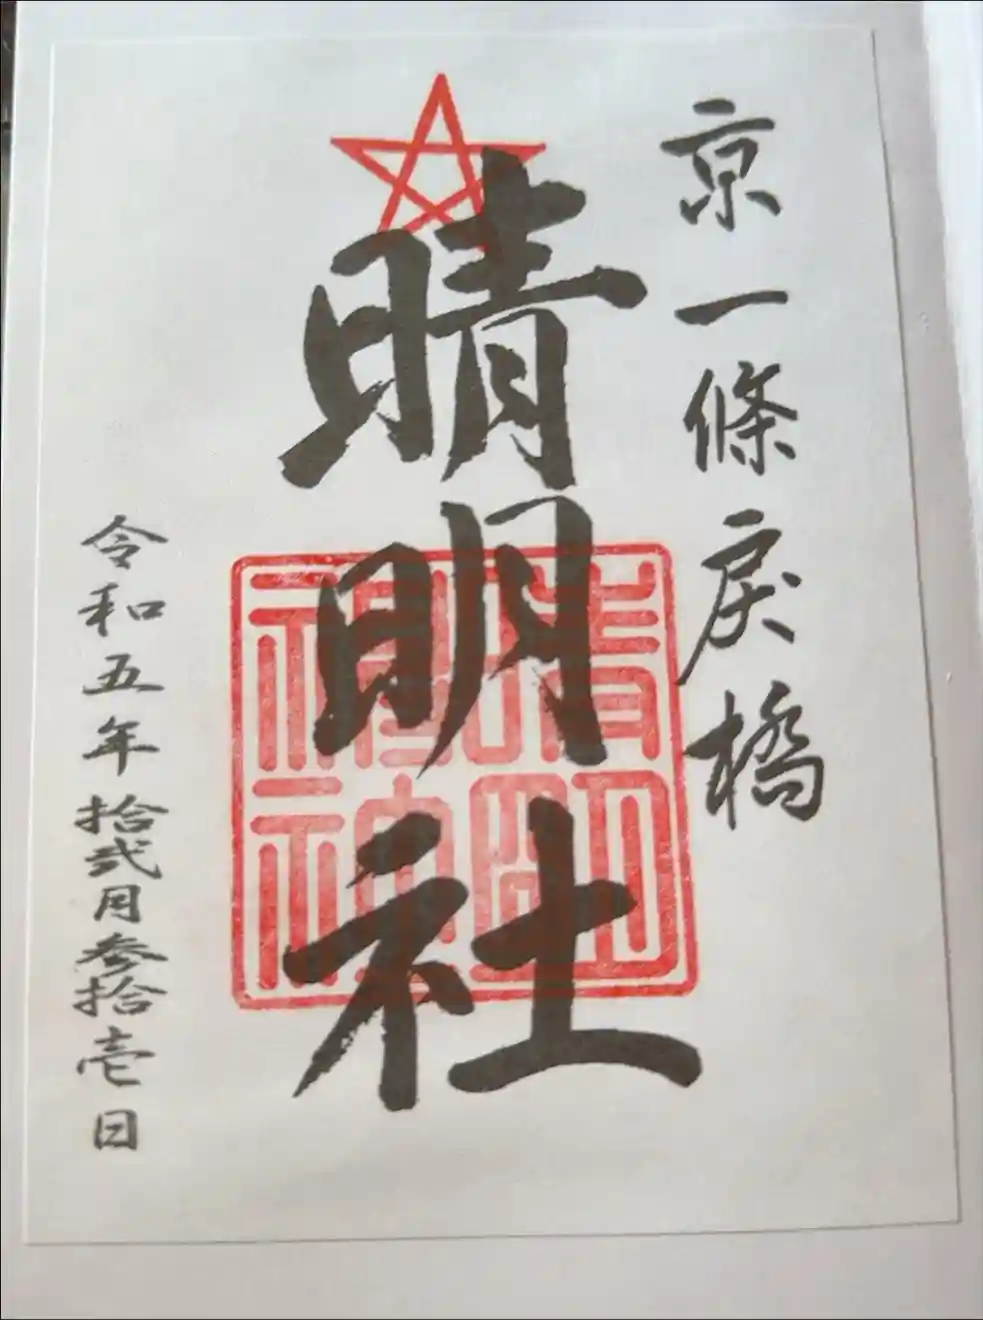 京一條戻橋
晴明社
晴明神社
令和五年拾弐月参拾壱日